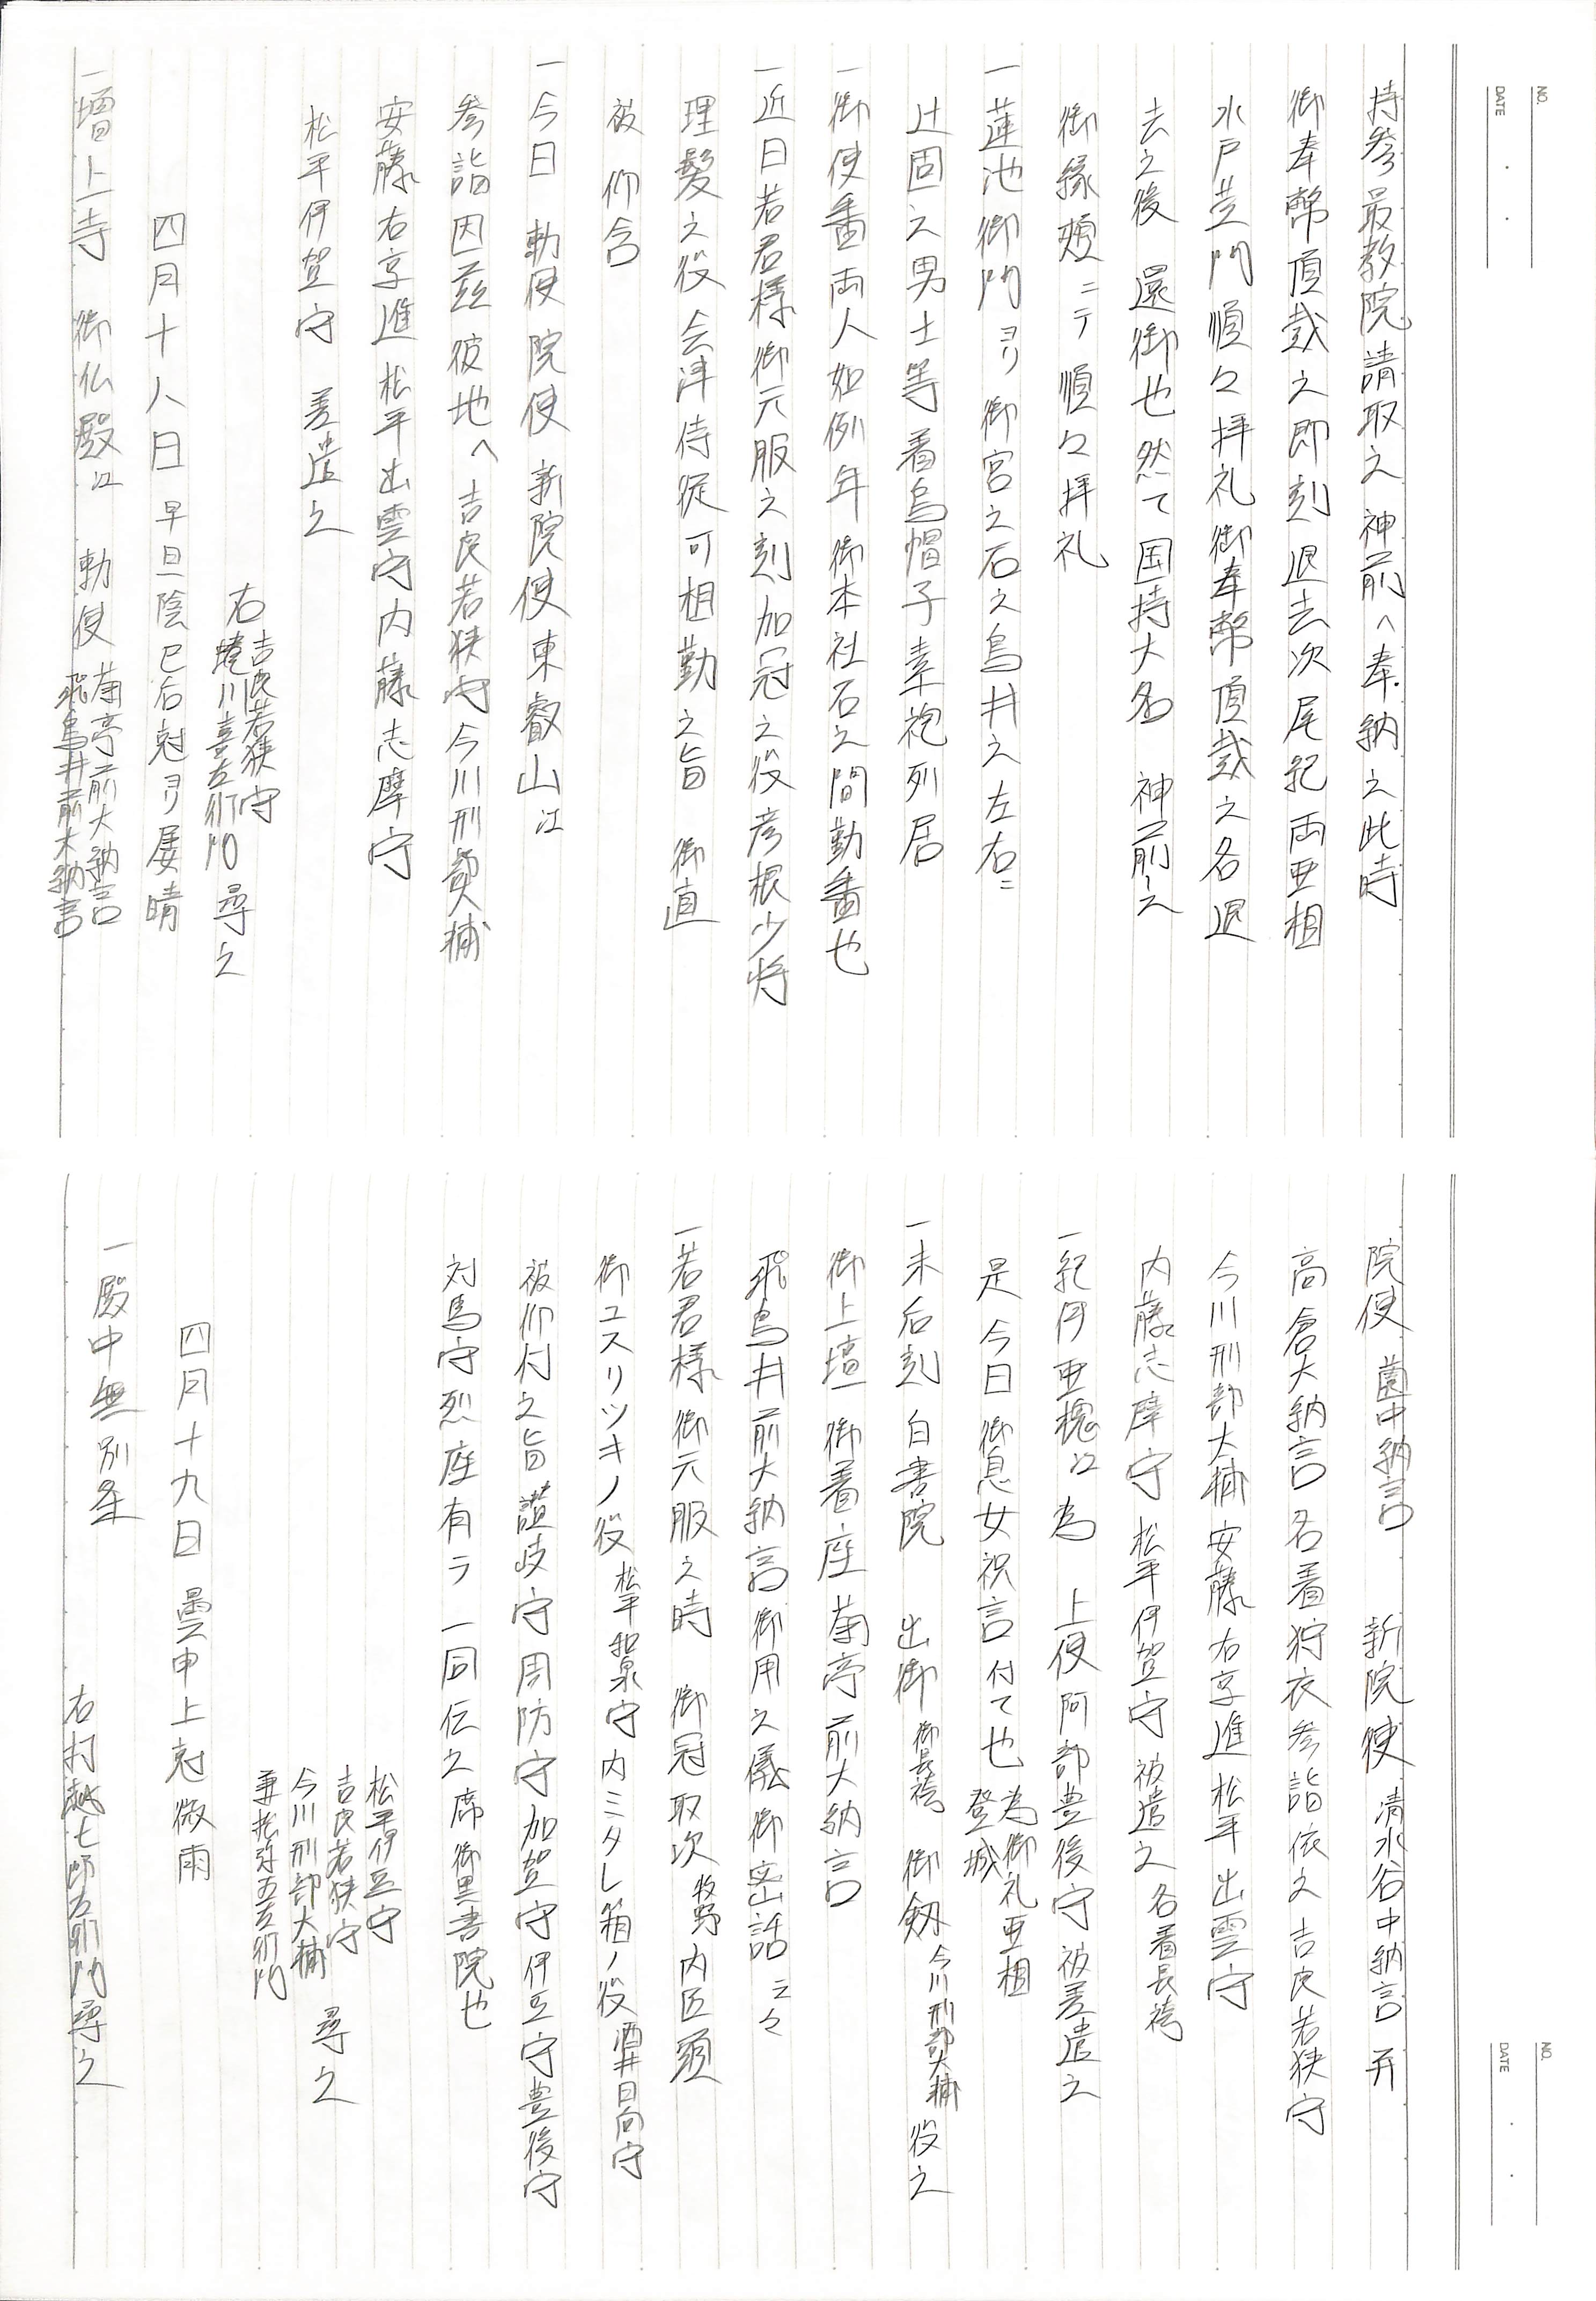 NO.
DATE
持参最教院請取之 神前へ奉納之此時
御奉幣頂戴之即刻退去次尾紀両亜相
水戸黄門順々拝礼御奉幣頂戴之各退
去之後 還御也然て国持大名 神前之
御縁頬ニテ順々拝礼
一蓮池御門ヨリ御宮之石之鳥井之左右ニ
辻固之男士等着烏帽子素袍列居
一御使番両人如例年御本社石之間勤番也
一近日若君様御元服之刻加冠之役彦根少将
理髪之役会津侍従可相勤之旨 御直
被仰含
一今日 勅使院使新院使東叡山江
参詣因茲彼地へ吉良若狭守今川刑部大輔
安藤右京進松平出雲守内藤志摩守
松平伊賀守 差遣之
右 吉良若狭守
蜷川喜左衛門 尋之
四月十八日 早旦陰巳后刻ヨリ屡晴
一増上寺 御仏殿江 勅使 菊亭前大納言
飛鳥井前大納言
NO.
DATE
院使 薗中納言 新院使 清水谷中納言并
高倉大納言各着狩衣参詣依之吉良若狭守
今川刑部大輔安藤右京進松平出雲守
内藤志摩守松平伊賀守被遣之 各着長袴
一紀伊亜槐江為 上使阿部豊後守被差遣之
是今日御息女祝言付て也 為御礼亜相
登城
一未后刻白書院 出御 御長袴 御剱 今川刑部大輔 役之
御上壇御着座菊亭前大納言
飛鳥井前大納言御用之儀御密話云々
一若君様御元服之時 御冠取次 牧野内匠頭
御ユスリツキノ役 松平和泉守 内ミタレ箱ノ役 酒井日向守
被仰付之旨讃岐守周防守加賀守伊豆守豊後守
対馬守烈座有テ一同伝之席御黒書院也
松平伊豆守
吉良若狭守
今川刑部大輔 尋之
兼松弥五左衛門
四月十九日 曇申上刻微雨
一殿中無別条
右打越七郎左衛門尋之